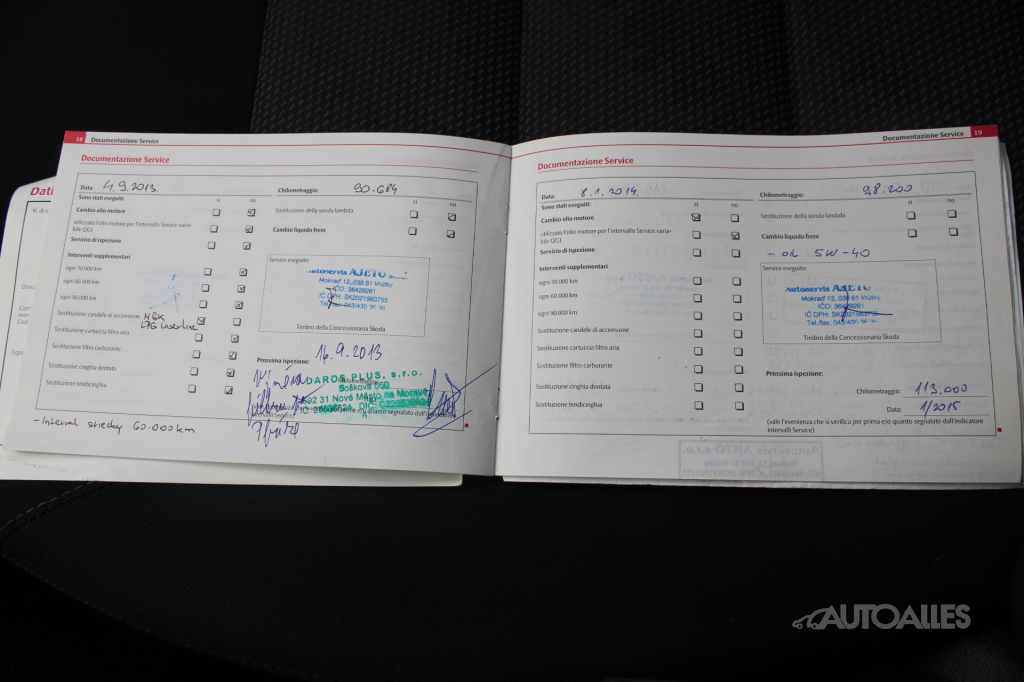 18 Documentazione Service
Documentazione Service
Data: 4.9.2013.
Chilometraggio: 90.684
Sono stati eseguiti:
si no
si no
Cambio olio motore
Sostituzione della sonda lambda
utilizzato l'olio motore per l'intervallo Service varia-
bile QG1
Cambio liquido freni
Servizio di ispezione
Interventi supplementari
ogni 30 000 km
ogni 60 000 km
ogni 90 000 km
Sostituzione candele di accensione NGK
LPG Laserline
Sostituzione cartuccia filtro aria
Sostituzione filtro carburante
Sostituzione cinghia dentata
Sostituzione tendicinghia
Service eseguito:
Autoservis AJETO
Mokraď 12, 038 61 Vrútky
IČO: 36429261
IČ DPH: SK2021983755
Tel./fax: 043/430
Timbro della Concessionaria Škoda
Prossima ispezione: 16.9.2013
DAROS PLUS, s.r.o.
Soškova 060
592 31 Nové Město na Moravě
- Interval sviečky 60.000 km
Documentazione Service 19
Documentazione Service
Data: 8.1.2014.
Chilometraggio: 98.200
Sono stati eseguiti:
si no
si no
Cambio olio motore
Sostituzione della sonda lambda
utilizzato l'olio motore per l'intervallo Service varia-
bile QG1
Cambio liquido freni
Servizio di ispezione
- OIL 5W-40
Interventi supplementari
ogni 30 000 km
ogni 60 000 km
ogni 90 000 km
Sostituzione candele di accensione
Sostituzione cartuccia filtro aria
Sostituzione filtro carburante
Sostituzione cinghia dentata
Sostituzione tendicinghia
Service eseguito:
Autoservis AJETO
Mokraď 12, 038 61 Vrútky
IČO: 36429261
IČ DPH: SK2021983755
Tel./fax: 043/430
Timbro della Concessionaria Škoda
Prossima ispezione:
Chilometraggio: 113.000
Data: 1/2015
(vale l'evenienza che si verifica per prima e/o quanto segnalato dall'indicatore
intervalli Service)
AUTOALLES